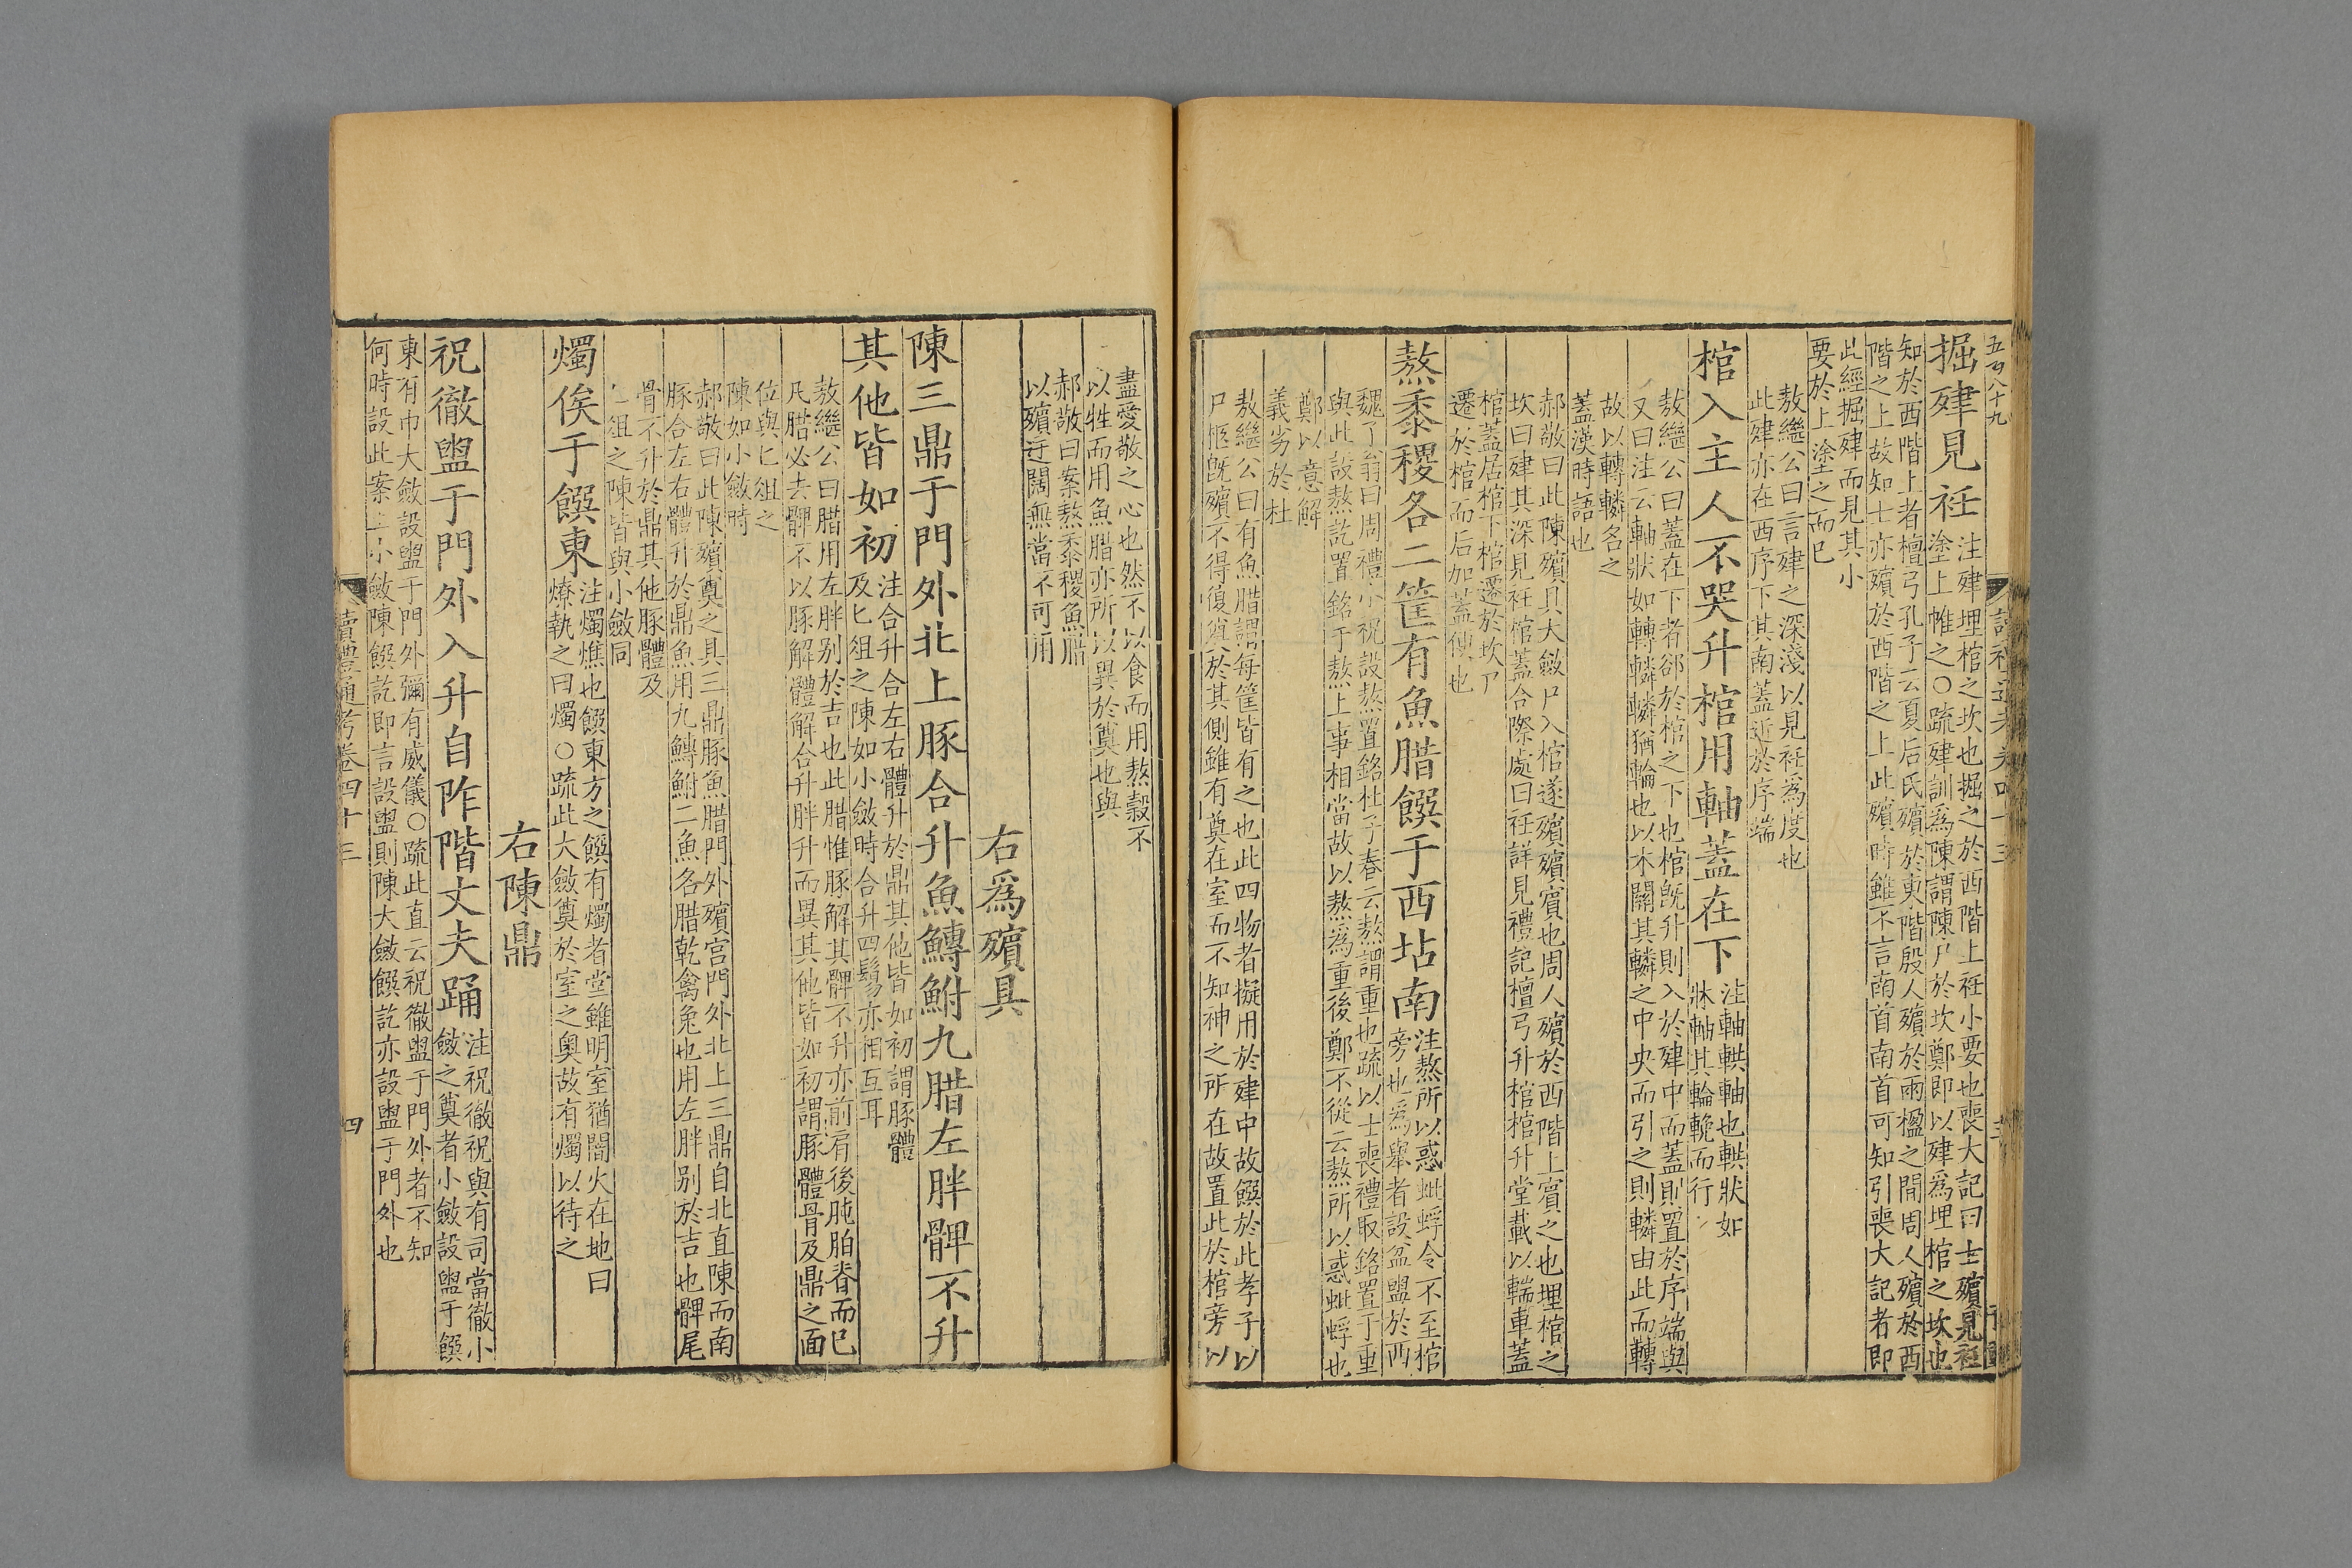 五百八十九
掘肂見衽
注肂埋棺之坎也掘之於西階上衽小要也喪大記曰士殯見衽
塗上帷之○疏肂訓為陳謂陳尸於坎鄭即以肂為埋棺之坎也
知於西階上者檀弓孔子云夏后氏殯於東階殷人殯於兩楹之間周人殯於西
階之上故知士亦殯於西階之上此殯時雖不言南首南首可知引喪大記者即
此經掘肂而見其小
要於上塗之而已
敖繼公曰言肂之深淺以見衽為度也
此肂亦在西序下其南蓋近於序端
棺入主人不哭升棺用軸蓋在下
注軸輁軸也輁狀如
牀軸其輪輓而行
敖繼公曰蓋在下者郤於棺之下也棺旣升則入於肂中而蓋則置於序端與
又曰注云軸狀如轉轔轔猶輪也以木關其轔之中央而引之則轔由此而轉
故以轉轔名之
蓋漢時語也
郝敬曰此陳殯具大斂尸入棺遂殯殯賓也周人殯於西階上賓之也埋棺之
坎曰肂其深見衽棺蓋合際處曰衽詳見禮記檀弓升棺棺升堂載以輲車蓋
棺蓋居棺下棺遷於坎尸
遷於棺而后加蓋僎也
熬黍稷各二筐有魚腊饌于西坫南
注熬所以惑蚍蜉令不至棺
旁也為舉者設盆盥於西
魏了翁曰周禮小祝設熬置銘杜子春云熬謂重也疏以士喪禮取銘置于重
與此設熬訖置銘于熬上事相當故以熬為重後鄭不從云熬所以惑蚍蜉也
鄭以意解
義劣於杜
敖繼公曰有魚腊謂每筐皆有之也此四物者擬用於肂中故饌於此孝子以
尸柩旣殯不得復奠於其側雖有奠在室而不知神之所在故置此於棺旁以
盡愛敬之心也然不以食而用熬穀不
以牲而用魚腊亦所以異於奠也與
郝敬曰案熬黍稷魚腊
以殯迂闊無當不可用
右為殯具
陳三鼎于門外北上豚合升魚鱄鮒九腊左胖髀不升
其他皆如初
注合升合左右體升於鼎其他皆如初謂豚體
及匕俎之陳如小斂時合升四鬄亦相互耳
敖繼公曰腊用左胖别於吉也此腊惟豚解其髀不升亦前肩後肫胉脊而已
凡腊必去髀不以豚解體解合升胖升而異其他皆如初謂豚體骨及鼎之面
位與匕俎之
陳如小斂時
郝敬曰此陳殯奠之具三鼎豚魚腊門外殯宮門外北上三鼎自北直陳而南
豚合左右體升於鼎魚用九鱄鮒二魚名腊乾禽兔也用左胖別於吉也髀尾
骨不升於鼎其他豚體及
匕俎之陳皆與小斂同
燭俟于饌東
注燭燋也饌東方之饌有燭者堂雖明室猶闇火在地曰
燎執之曰燭○疏此大斂奠於室之奧故有燭以待之
右陳鼎
祝徹盥于門外入升自阼階丈夫踊
注祝徹祝與有司當徹小
斂之奠者小斂設盥于饌
東有巾大斂設盥于門外彌有威儀○疏此直云祝徹盥于門外者不知
何時設此案上小斂陳饌訖即言設盥則陳大斂饌訖亦設盥于門外也
讀禮通考卷四十三
四